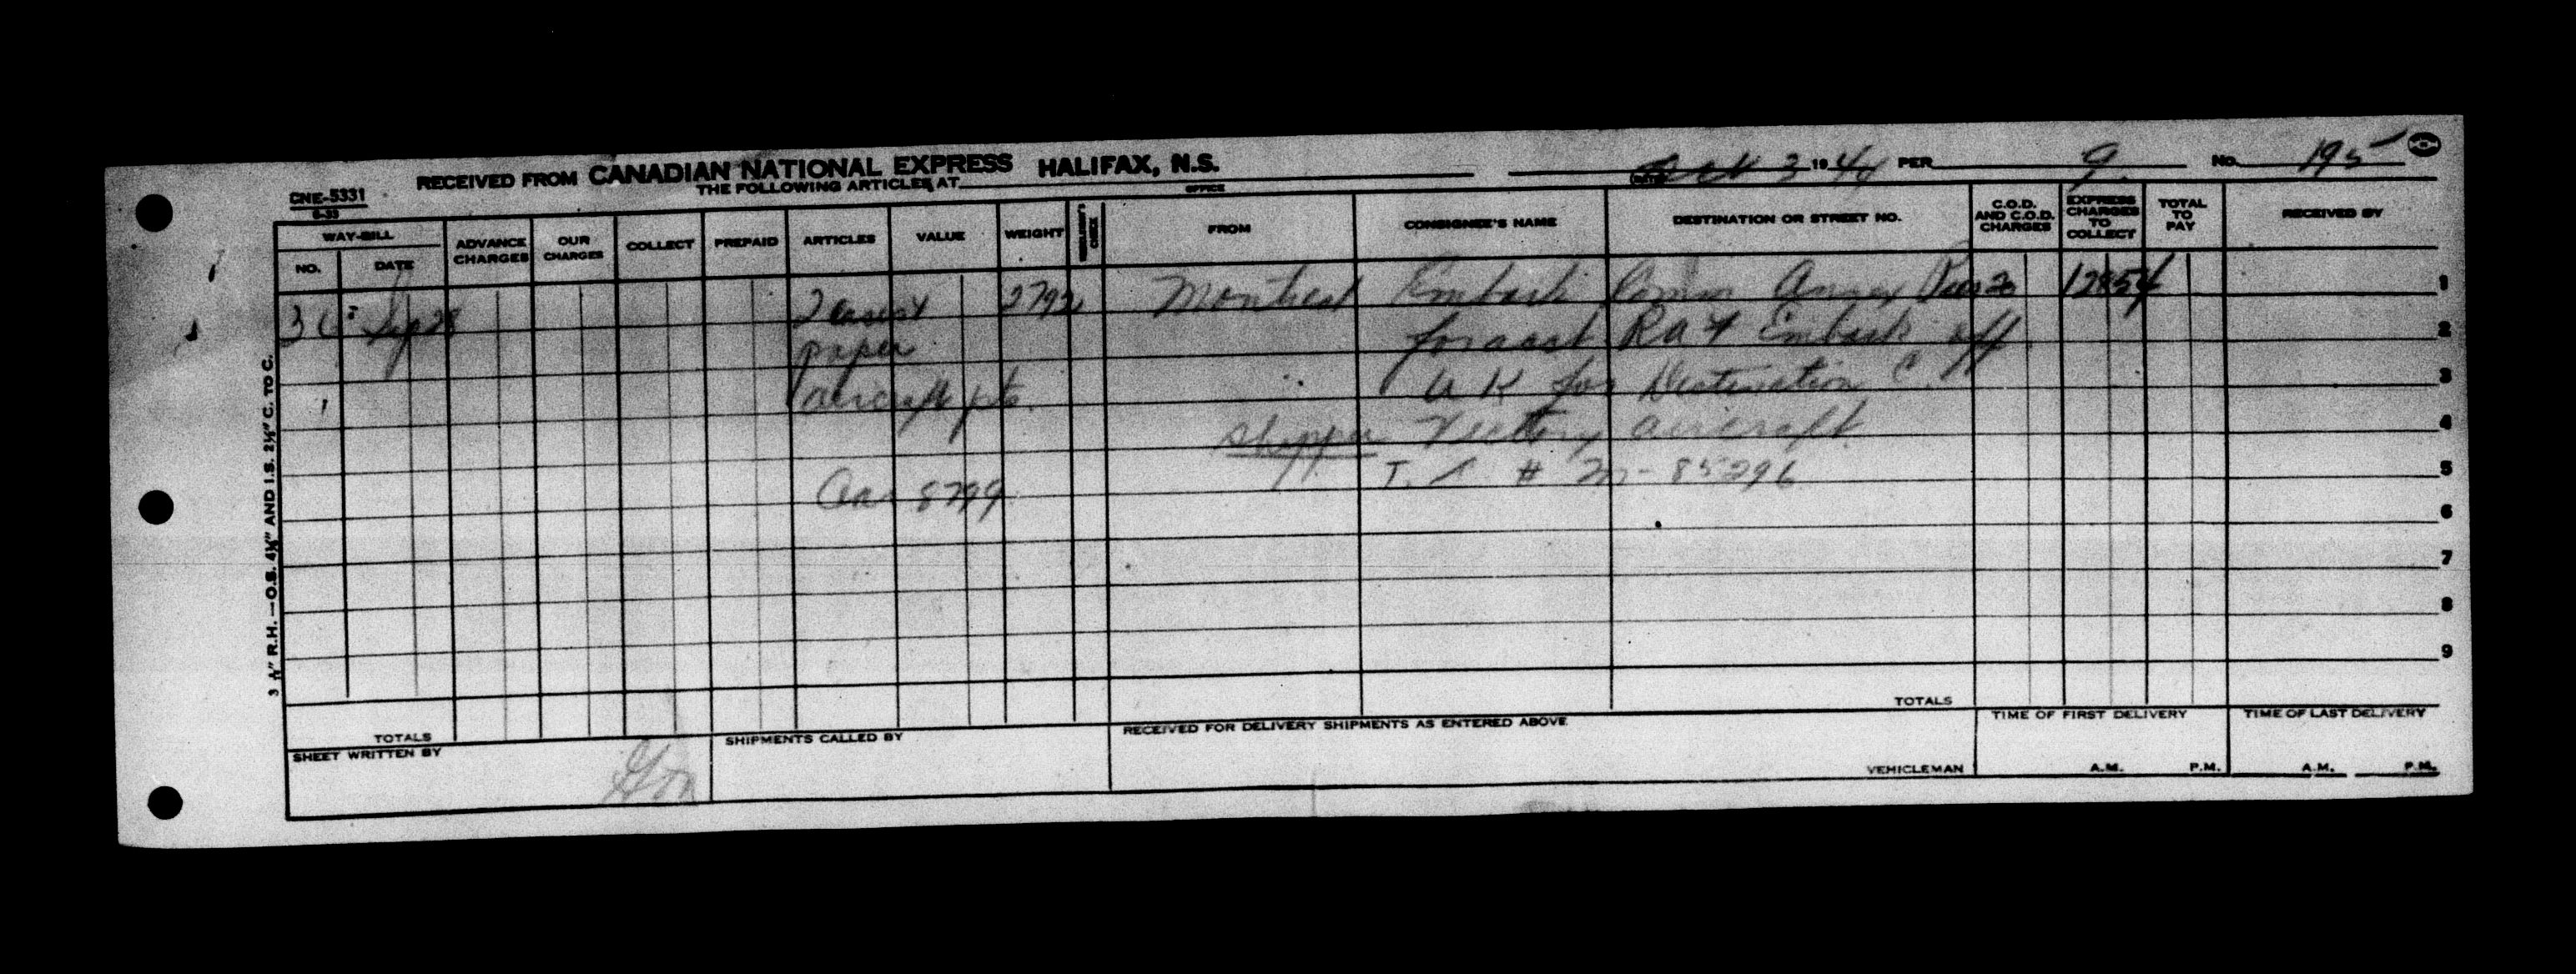 RECEIVED FROM CANADIAN NATIONAL EXPRESS HALIFAX, N.S. Oct 3 1944 PER 9. No. 195
THE FOLLOWING ARTICLES AT OFFICE (DATE)
CNE-5331
6-33
WAY-BILL NO. DATE ADVANCE CHARGES OUR CHARGES COLLECT PREPAID ARTICLES VALUE WEIGHT CHECK FROM CONSIGNEE'S NAME DESTINATION OR STREET NO. C.O.D. AND C.O.D. CHARGES EXPRESS CHARGES TO COLLECT TOTAL TO PAY RECEIVED BY
Sep 28 2 cases 2792 Montreal Embark Comm Annex Pier 2 1
paper for acct RAF Embark off 2
aircraft pts. U K for Destination C. 3
shipper Victory aircraft 4
Car 8799 # M-85296 5
6
7
8
9
TOTALS
TOTALS
SHEET WRITTEN BY SHIPMENTS CALLED BY RECEIVED FOR DELIVERY SHIPMENTS AS ENTERED ABOVE TIME OF FIRST DELIVERY TIME OF LAST DELIVERY
VEHICLEMAN A.M. P.M. A.M. P.M.
R.H.—O.S. 4¼" AND I.S. 2½" C. TO C.